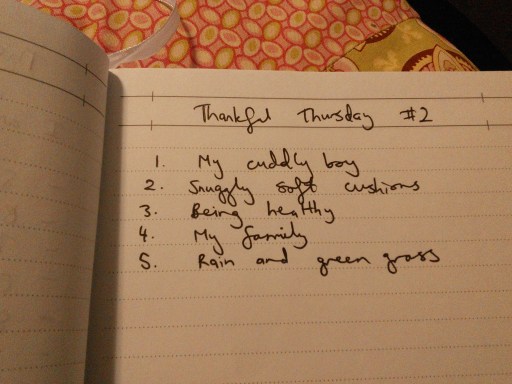 Thankful Thursday #2
1. My cuddly boy
2. Snuggly soft cushions
3. Being healthy
4. My family
5. Rain and green grass